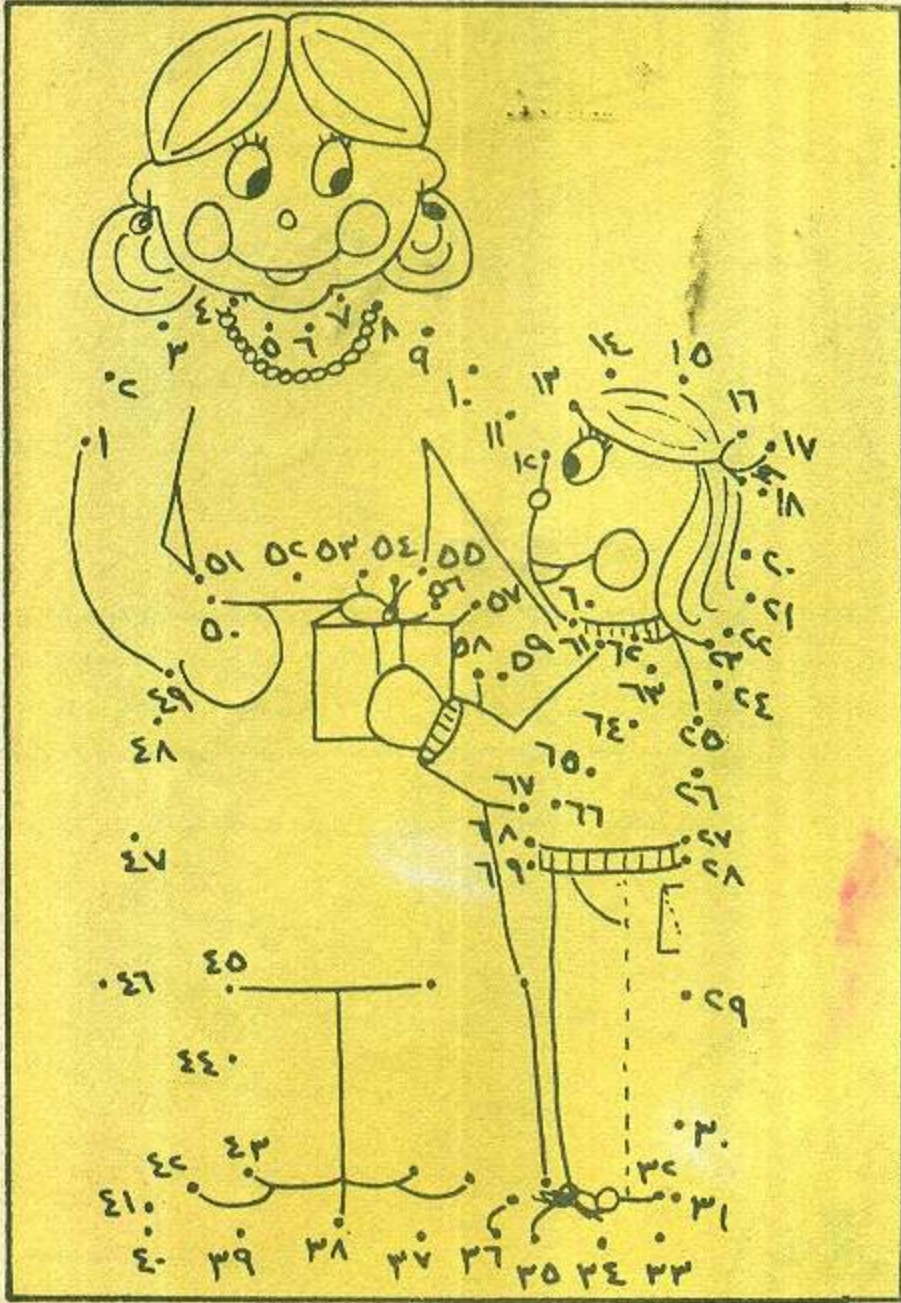 ١
٢
٣
٤
٥
٦
٧
٨
٩
١٠
١١
١٢
١٣
١٤
١٥
١٦
١٧
١٨
٢٠
٢١
٢٢
٢٣
٢٤
٢٥
٢٦
٢٧
٢٨
٢٩
٣٠
٣١
٣٢
٣٣
٣٤
٣٥
٣٦
٣٧
٣٨
٣٩
٤٠
٤١
٤٢
٤٣
٤٤
٤٥
٤٦
٤٧
٤٨
٤٩
٥٠
٥١
٥٢
٥٣
٥٤
٥٥
٥٦
٥٧
٥٨
٥٩
٦٠
٦١
٦٢
٦٣
٦٤
٦٥
٦٦
٦٧
٦٨
٦٩